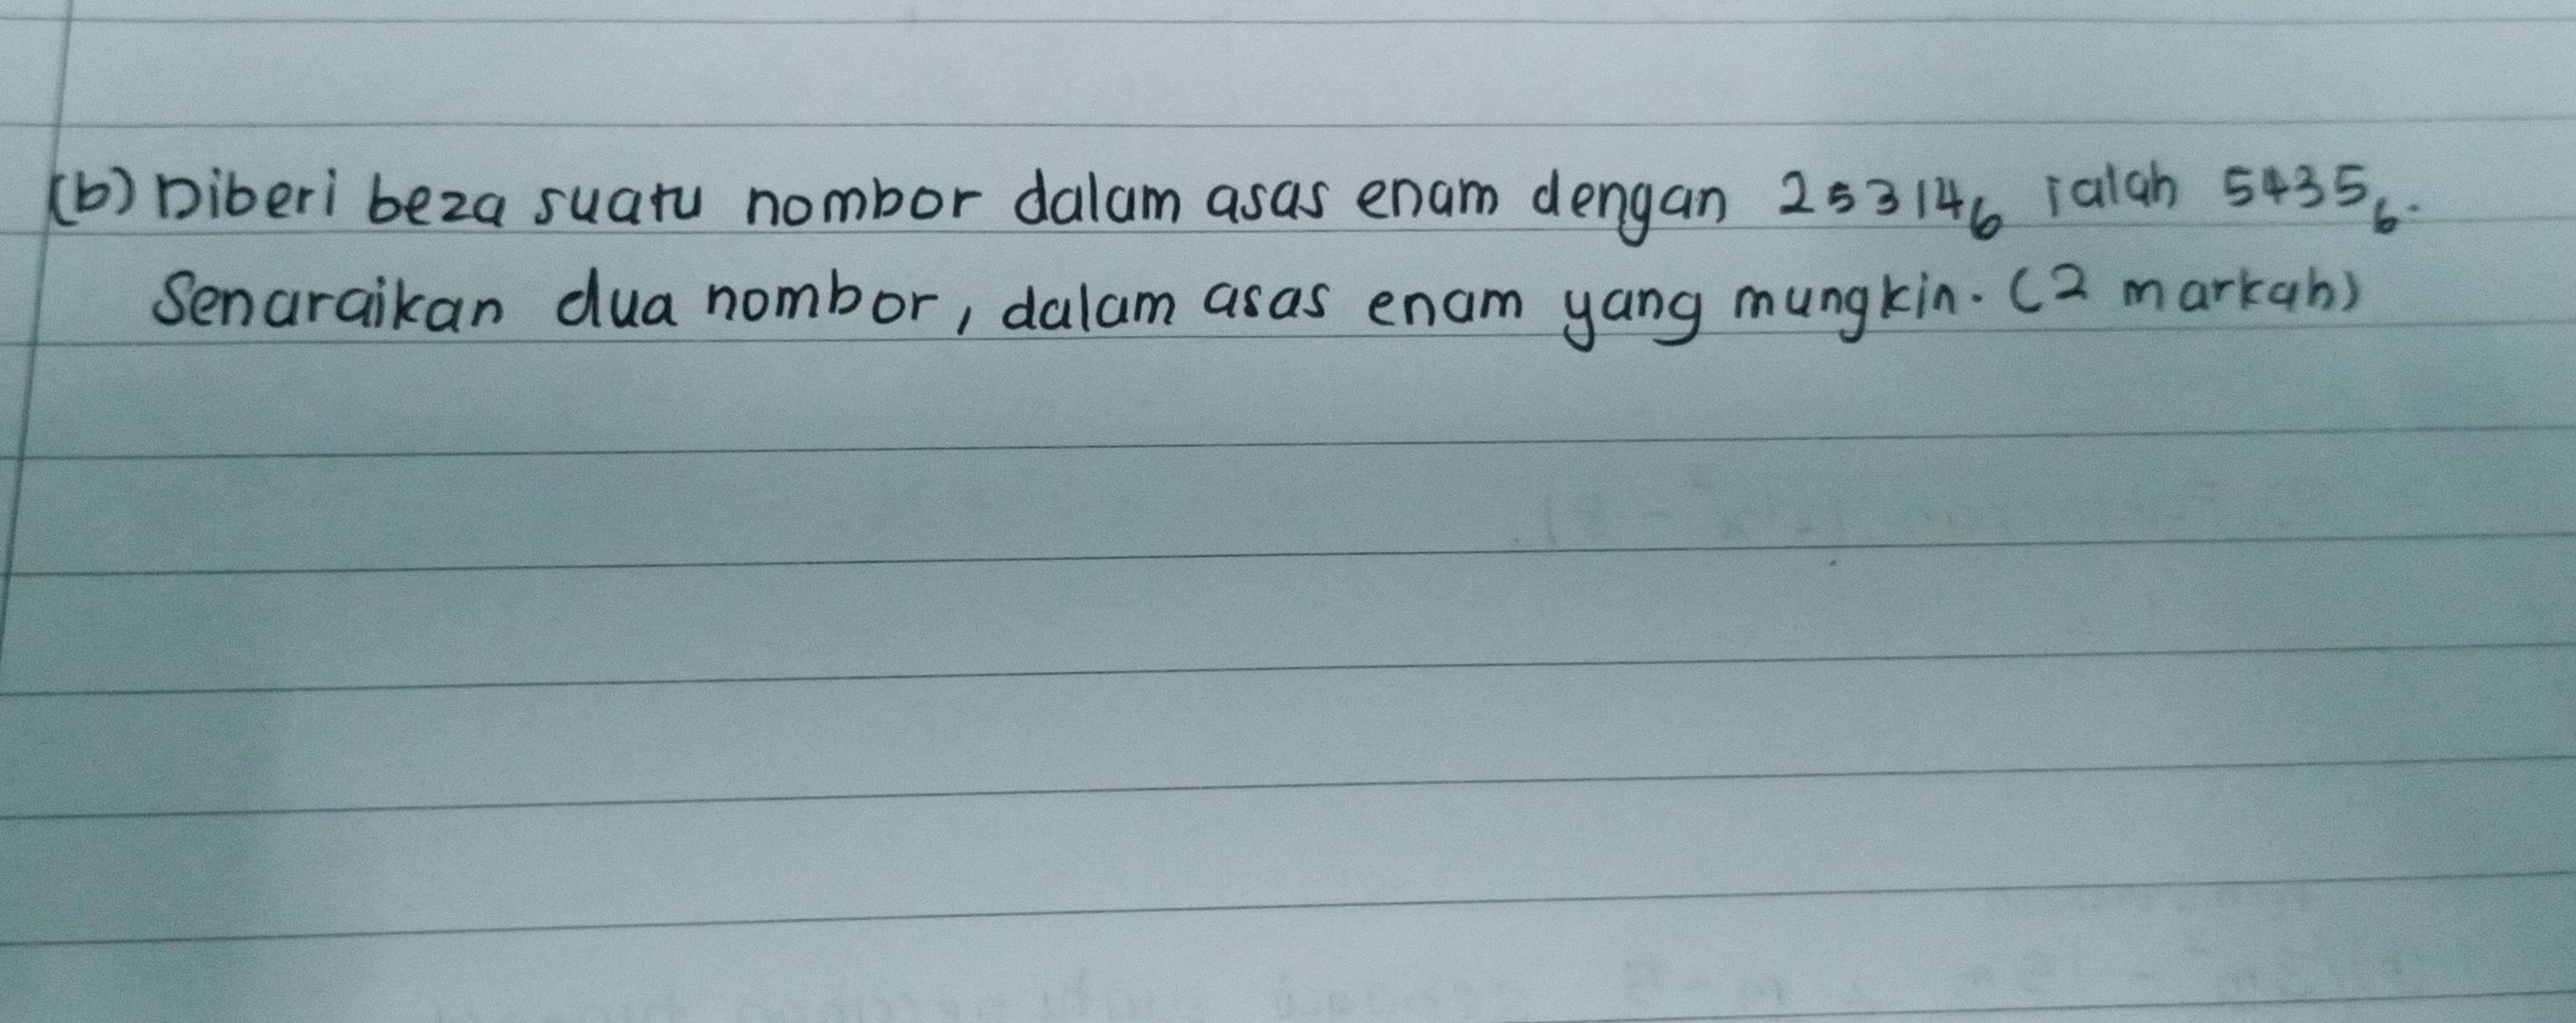 (b) Diberi beza suatu nombor dalam asas enam dengan 25314₆ ialah 5435₆.
Senaraikan dua nombor, dalam asas enam yang mungkin. (2 markah)